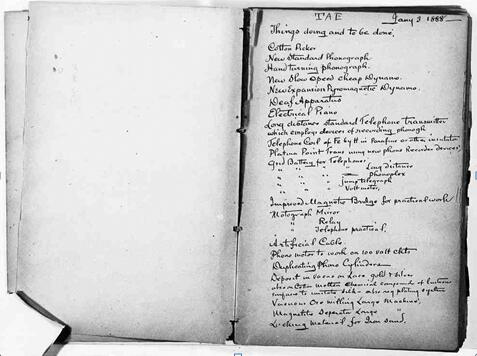 TAE Jany 3 1888
Things doing and to be done,
Cotton Picker
New Standard Phonograph
Hand turning phonograph.
New Slow Speed cheap Dynamo.
New Expansion Pyromagnetic Dynamo.
Deaf Apparatus
Electrical Piano
Long distance standard Telephone Transmitter
which employs devices of recording phonogh
Telephone Coil of Fe by tt in Parafine or other insulator
Platina Point Trans using new phono Recorder devices,
Grd Battery for Telephones,
" " " Long distance
" " " Phonoplex
" " " Jump telegraph
" " " Voltmeter,
Improved Magneto Bridge for practical work
Motograph Mirror
" Relay
" Telephone practical,
Artificial Cable.
Phono motor to work on 100 volt ckts
Duplicating Phono Cylinders
Deposit in vacuo on Lace gold & silver
also on Cotton molten chemical compound of lustrous
surface to imitate silk — also reg plating system
Vacuous Ore milling Large Machine,
Magnetic Separator Large "
Locking material for Iron sand,